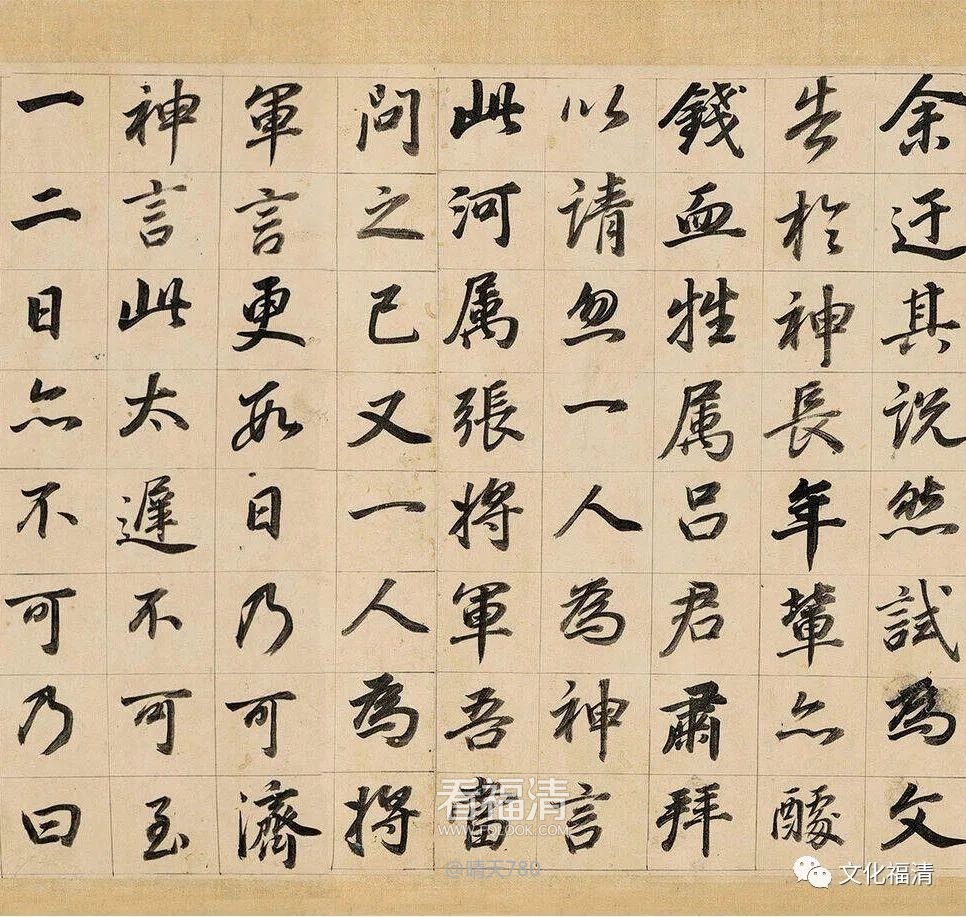 余迂其说然試為文
告於神長年輩亦醵
錢血牲属吕君肅拜
以请忽一人為神言
此河属張将軍吾當
問之已又一人為将
軍言更数日乃可濟
神言此太遲不可至
一二日亦不可乃曰
看福清
WWW.FQLOOK.COM
@晴天780
文化福清